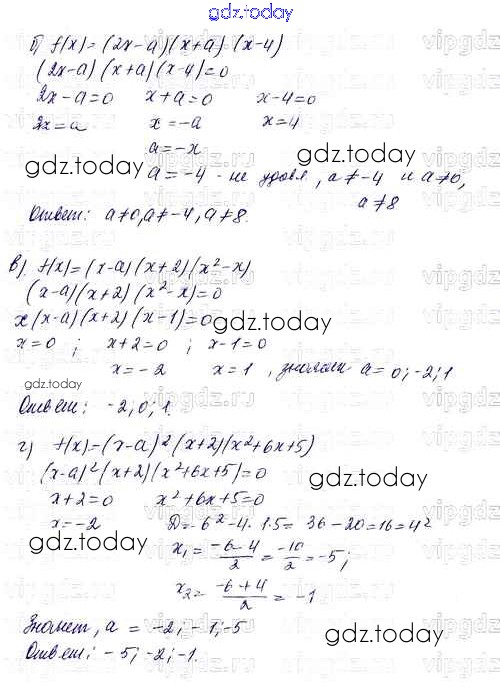 gdz.today
б) f(x)=(2x-a)(x+a)(x-4)
(2x-a)(x+a)(x-4)=0
2x-a=0 x+a=0 x-4=0
2x=a x=-a x=4
a=-x
gdz.today
gdz.today
a=-4 - не удовл, a≠-4 и a≠0,
a≠8
Ответ: a≠0, a≠-4, a≠8.
в) f(x)=(x-a)(x+2)(x²-x)
(x-a)(x+2)(x²-x)=0
x(x-a)(x+2)(x-1)=0
gdz.today
x=0; x+2=0; x-1=0
x=-2 x=1, значит a=0;-2;1
gdz.today
Ответ: -2;0;1.
г) f(x)=(x-a)²(x+2)(x²+6x+5)
(x-a)²(x+2)(x²+6x+5)=0
gdz.today
x+2=0 x²+6x+5=0
x=-2 D=6²-4·1·5=36-20=16=4²
gdz.today
x₁=(-6-4)/2=(-10)/2=-5;
x₂=(-6+4)/2=-1
Значит, a=-2;-1;-5
gdz.today
Ответ: -5;-2;-1.